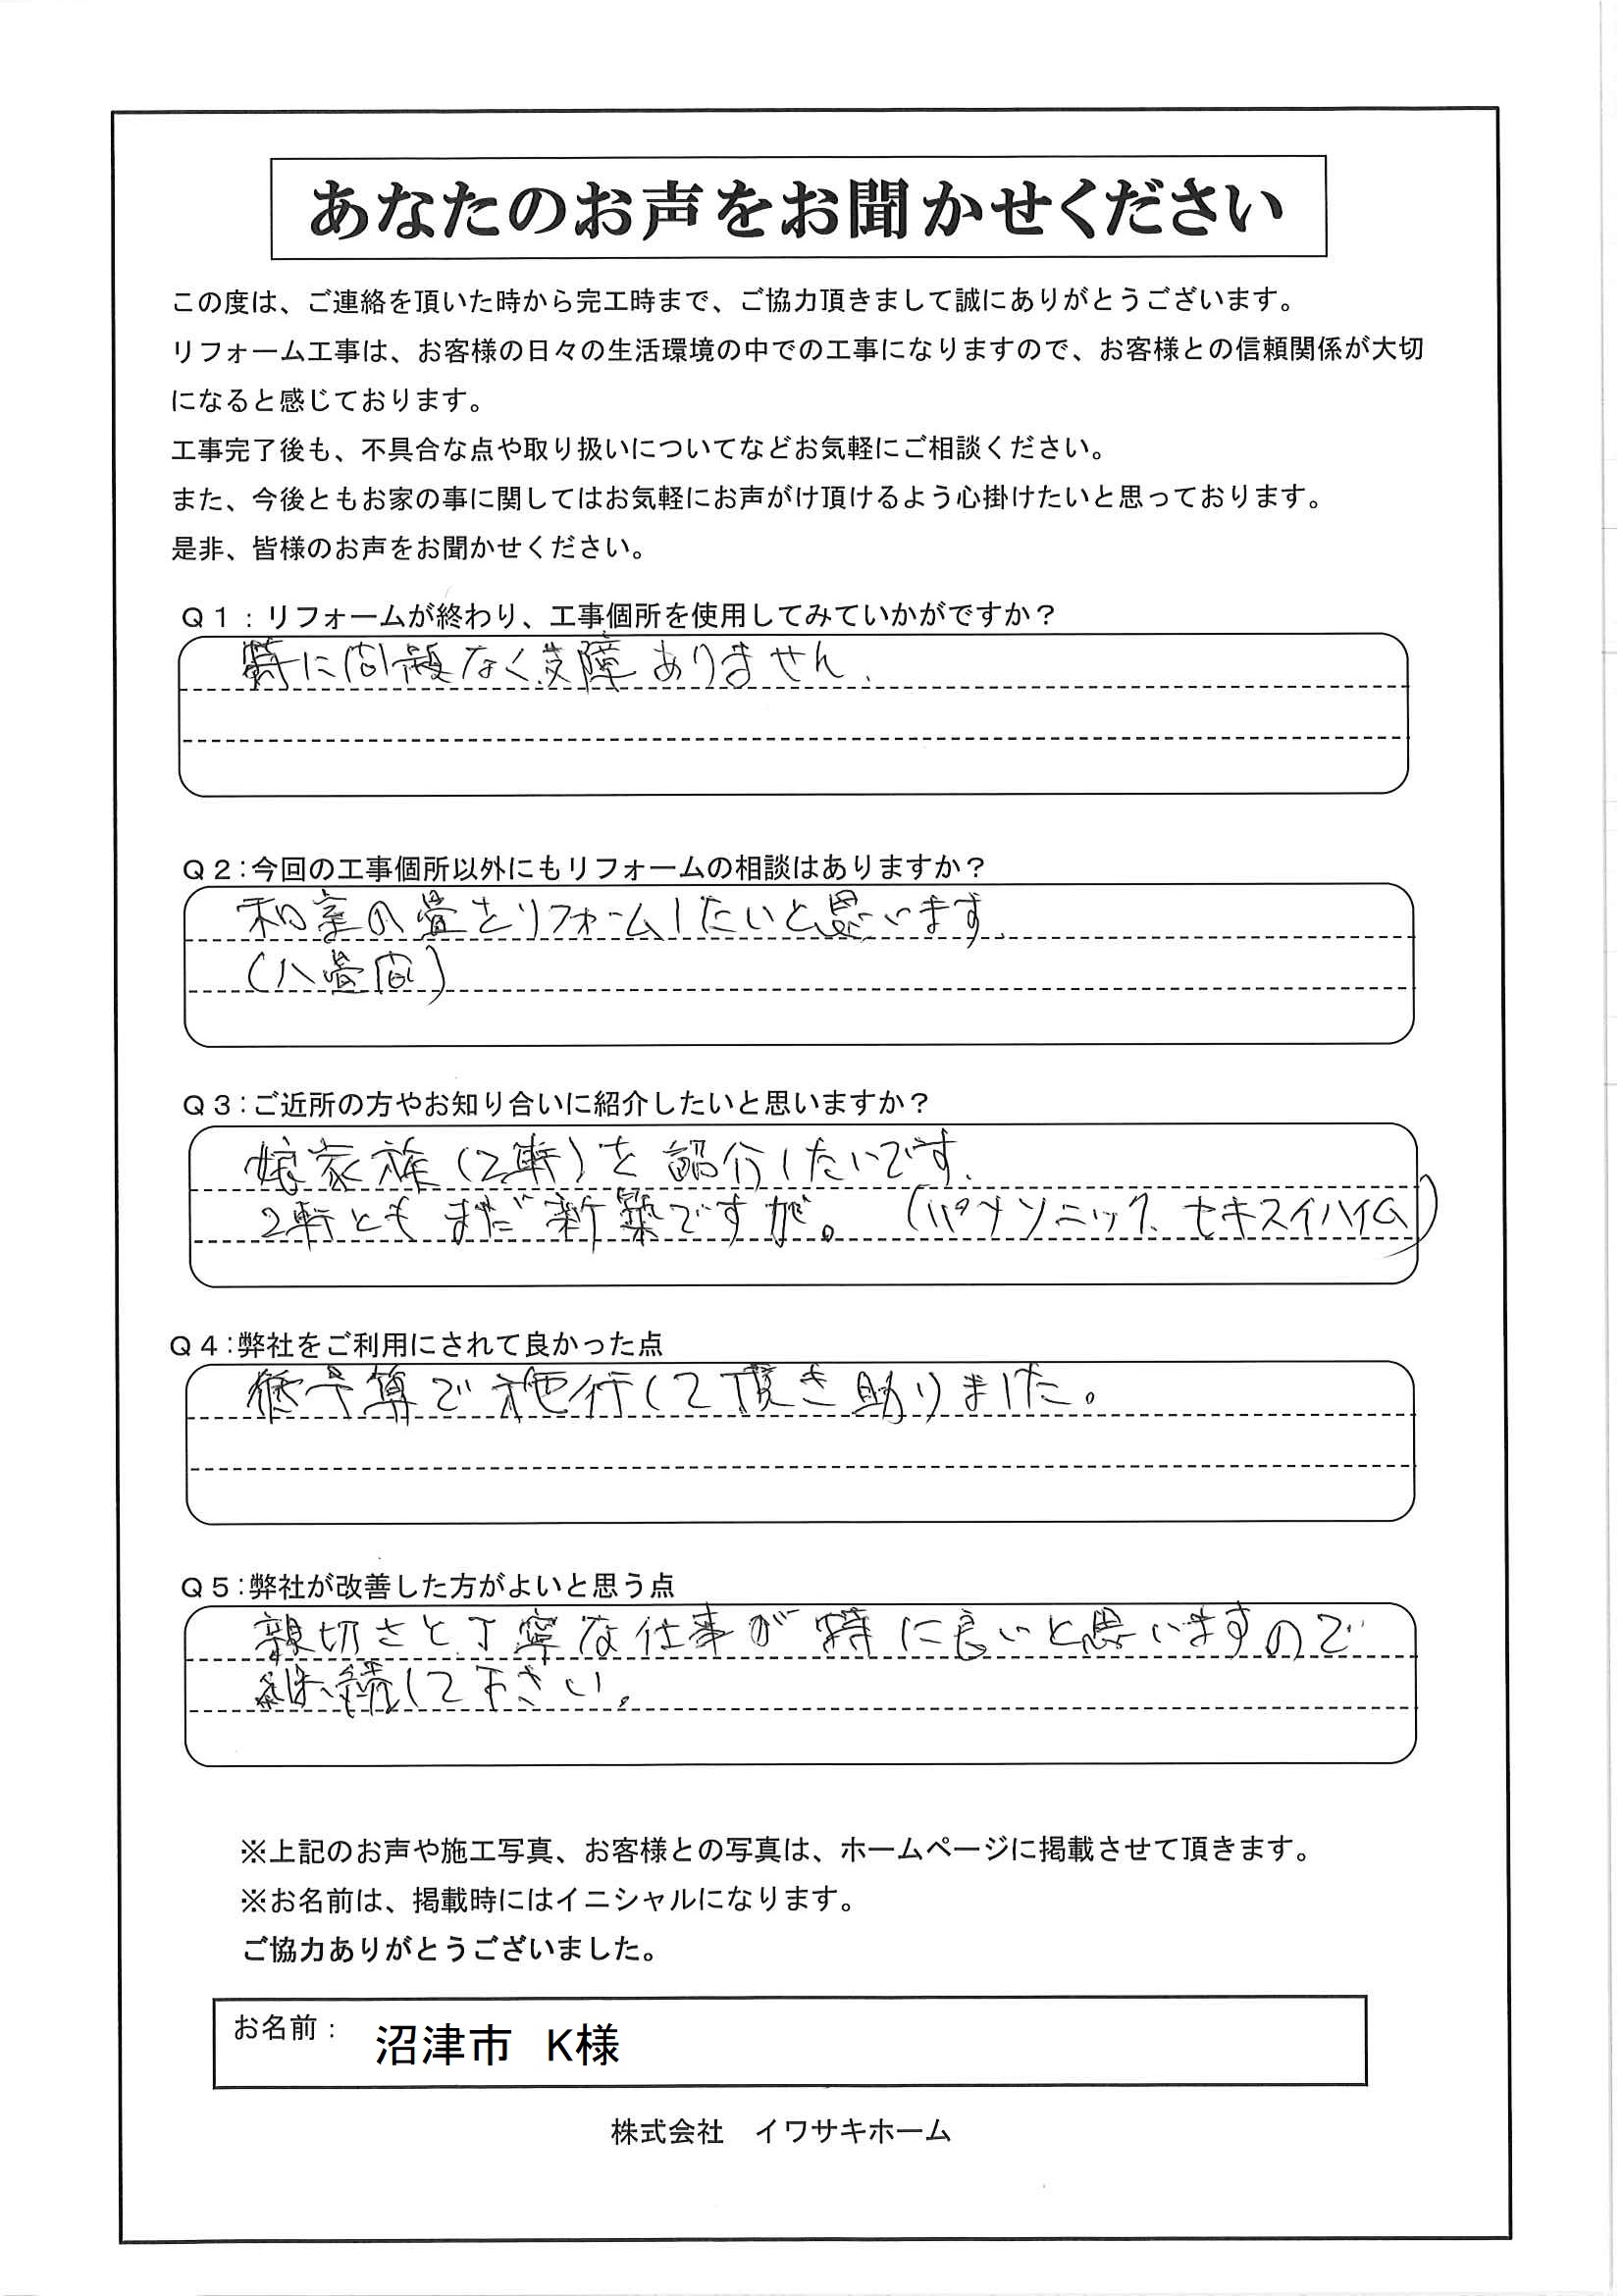 あなたのお声をお聞かせください
この度は、ご連絡を頂いた時から完工時まで、ご協力頂きまして誠にありがとうございます。
リフォーム工事は、お客様の日々の生活環境の中での工事になりますので、お客様との信頼関係が大切
になると感じております。
工事完了後も、不具合な点や取り扱いについてなどお気軽にご相談ください。
また、今後ともお家の事に関してはお気軽にお声がけ頂けるよう心掛けたいと思っております。
是非、皆様のお声をお聞かせください。
Q1:リフォームが終わり、工事個所を使用してみていかがですか?
特に問題なく支障ありません.
Q2:今回の工事個所以外にもリフォームの相談はありますか?
和室の畳をリフォームしたいと思います.
(八畳間)
Q3:ご近所の方やお知り合いに紹介したいと思いますか?
娘家族(2軒)を紹介したいです.
2軒ともまだ新築ですが。(パナソニック、セキスイハイム)
Q4:弊社をご利用にされて良かった点
低予算で施行して頂き助りました。
Q5:弊社が改善した方がよいと思う点
親切さと丁寧な仕事が特に良いと思いますので
継続して下さい。
※上記のお声や施工写真、お客様との写真は、ホームページに掲載させて頂きます。
※お名前は、掲載時にはイニシャルになります。
ご協力ありがとうございました。
お名前: 沼津市 K様
株式会社 イワサキホーム